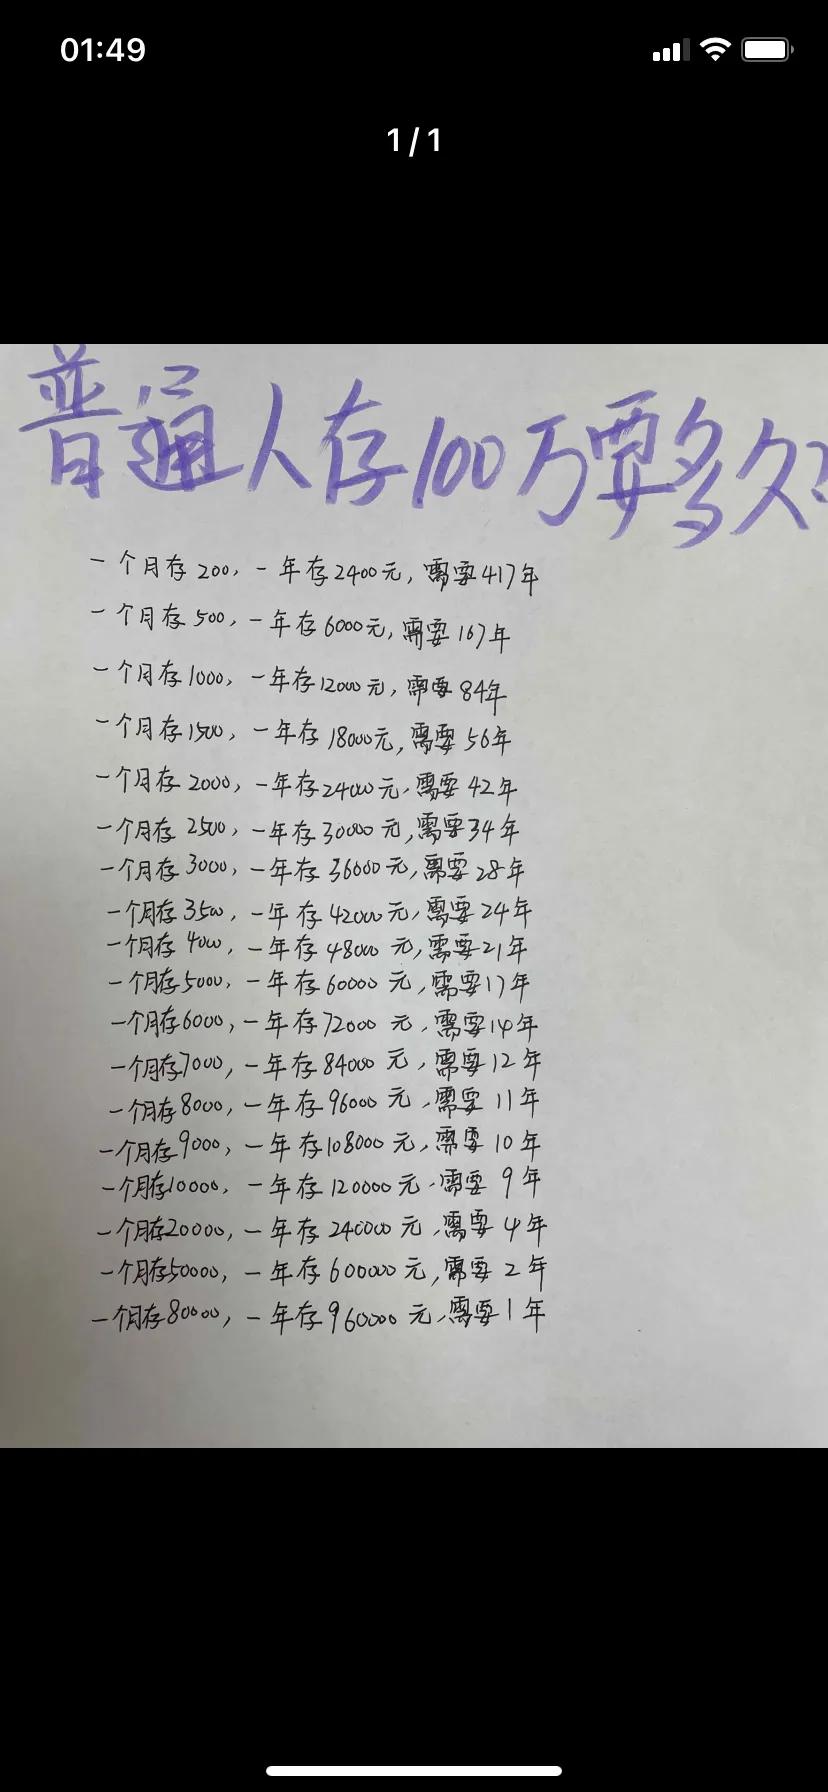 01:49
1/1
普通人存100万要多久?
一个月存200,一年存2400元,需要417年
一个月存500,一年存6000元,需要167年
一个月存1000,一年存12000元,需要84年
一个月存1500,一年存18000元,需要56年
一个月存2000,一年存24000元,需要42年
一个月存2500,一年存30000元,需要34年
一个月存3000,一年存36000元,需要28年
一个月存3500,一年存42000元,需要24年
一个月存4000,一年存48000元,需要21年
一个月存5000,一年存60000元,需要17年
一个月存6000,一年存72000元,需要14年
一个月存7000,一年存84000元,需要12年
一个月存8000,一年存96000元,需要11年
一个月存9000,一年存108000元,需要10年
一个月存10000,一年存120000元,需要9年
一个月存20000,一年存240000元,需要4年
一个月存50000,一年存600000元,需要2年
一个月存80000,一年存960000元,需要1年